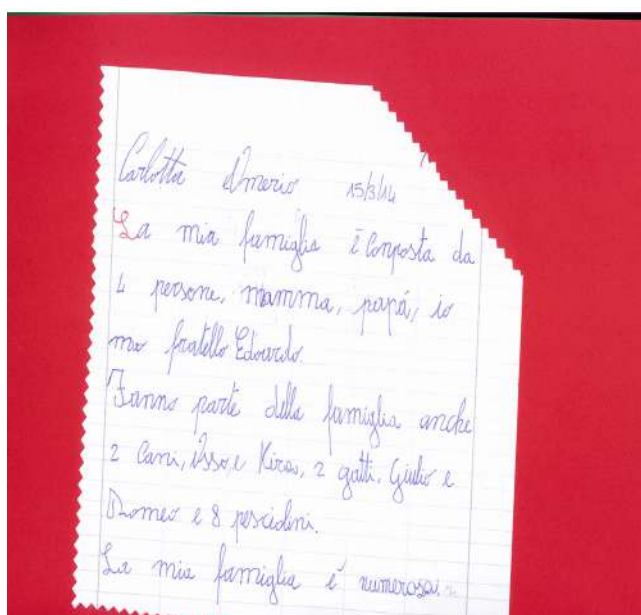 Carlotta Amerio 15/3/14
La mia famiglia è Conposta da
4 persone, mamma, papá, io
mio fratello Edoardo.
Fanno parte della famiglia anche
2 Cani, e Kira, 2 gatti, Giulio e
Romeo e 8 pesciolini.
La mia famiglia é numerosa.